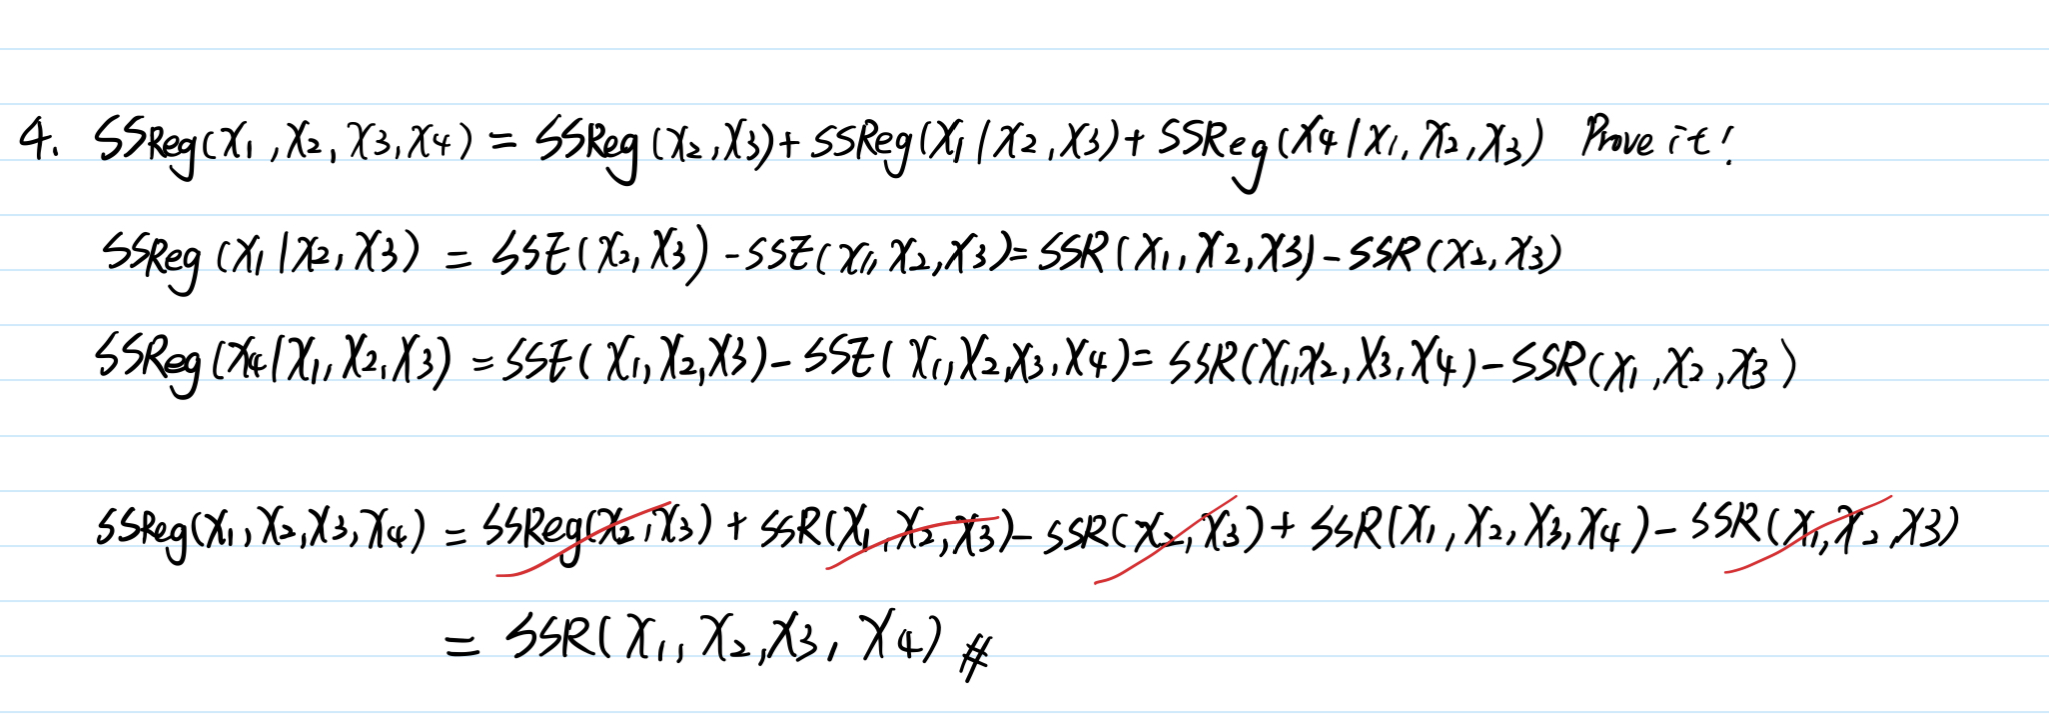 4. SSReg(X1, X2, X3, X4) = SSReg(X2, X3) + SSReg(X1 | X2, X3) + SSReg(X4 | X1, X2, X3) Prove it!
SSReg(X1 | X2, X3) = SSE(X2, X3) - SSE(X1, X2, X3) = SSR(X1, X2, X3) - SSR(X2, X3)
SSReg(X4 | X1, X2, X3) = SSE(X1, X2, X3) - SSE(X1, X2, X3, X4) = SSR(X1, X2, X3, X4) - SSR(X1, X2, X3)
SSReg(X1, X2, X3, X4) = SSReg(X2, X3) + SSR(X1, X2, X3) - SSR(X2, X3) + SSR(X1, X2, X3, X4) - SSR(X1, X2, X3)
= SSR(X1, X2, X3, X4) #